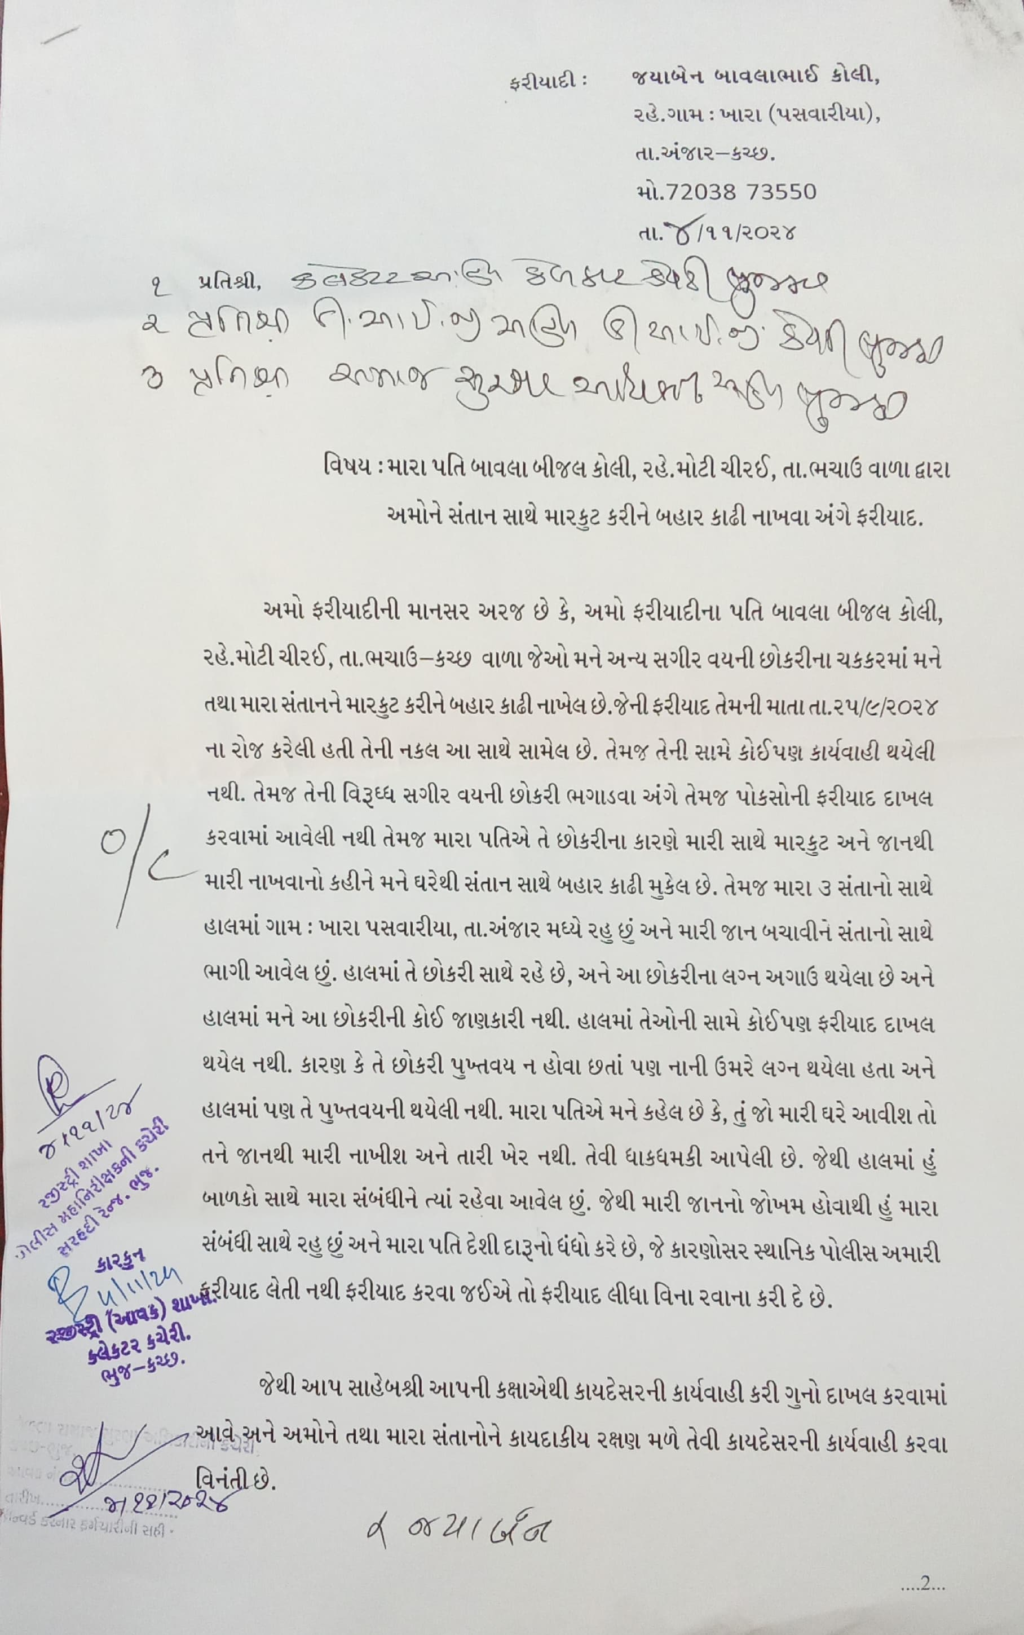 ફરીયાદી : જયાબેન બાવલાભાઈ કોલી,
રહે.ગામ : ખારા (પસવારીયા),
તા.અંજાર–કચ્છ.
મો.72038 73550
તા.૪/૧૧/૨૦૨૪
૧ પ્રતિશ્રી, કલેકટર કચેરી ભુજ
૨ પ્રતિશ્રી આઈ.જી કચેરી ભુજ
૩ પ્રતિશ્રી સમાજ સુરક્ષા ભુજ
વિષય : મારા પતિ બાવલા બીજલ કોલી, રહે.મોટી ચીરઈ, તા.ભચાઉ વાળા દ્વારા
અમોને સંતાન સાથે મારકુટ કરીને બહાર કાઢી નાખવા અંગે ફરીયાદ.
અમો ફરીયાદીની માનસર અરજ છે કે, અમો ફરીયાદીના પતિ બાવલા બીજલ કોલી,
રહે.મોટી ચીરઈ, તા.ભચાઉ–કચ્છ વાળા જેઓ મને અન્ય સગીર વયની છોકરીના ચકકરમાં મને
તથા મારા સંતાનને મારકુટ કરીને બહાર કાઢી નાખેલ છે.જેની ફરીયાદ તેમની માતા તા.૨૫/૯/૨૦૨૪
ના રોજ કરેલી હતી તેની નકલ આ સાથે સામેલ છે. તેમજ તેની સામે કોઈપણ કાર્યવાહી થયેલી
નથી. તેમજ તેની વિરૂધ્ધ સગીર વયની છોકરી ભગાડવા અંગે તેમજ પોકસોની ફરીયાદ દાખલ
કરવામાં આવેલી નથી તેમજ મારા પતિએ તે છોકરીના કારણે મારી સાથે મારકુટ અને જાનથી
મારી નાખવાનો કહીને મને ઘરેથી સંતાન સાથે બહાર કાઢી મુકેલ છે. તેમજ મારા ૩ સંતાનો સાથે
હાલમાં ગામ : ખારા પસવારીયા, તા.અંજાર મધ્યે રહુ છું અને મારી જાન બચાવીને સંતાનો સાથે
ભાગી આવેલ છું. હાલમાં તે છોકરી સાથે રહે છે, અને આ છોકરીના લગ્ન અગાઉ થયેલા છે અને
હાલમાં મને આ છોકરીની કોઈ જાણકારી નથી. હાલમાં તેઓની સામે કોઈપણ ફરીયાદ દાખલ
થયેલ નથી. કારણ કે તે છોકરી પુખ્તવય ન હોવા છતાં પણ નાની ઉમરે લગ્ન થયેલા હતા અને
હાલમાં પણ તે પુખ્તવયની થયેલી નથી. મારા પતિએ મને કહેલ છે કે, તું જો મારી ઘરે આવીશ તો
તને જાનથી મારી નાખીશ અને તારી ખેર નથી. તેવી ધાકધમકી આપેલી છે. જેથી હાલમાં હું
બાળકો સાથે મારા સંબંધીને ત્યાં રહેવા આવેલ છું. જેથી મારી જાનનો જોખમ હોવાથી હું મારા
સંબંધી સાથે રહુ છું અને મારા પતિ દેશી દારૂનો ધંધો કરે છે, જે કારણોસર સ્થાનિક પોલીસ અમારી
ફરીયાદ લેતી નથી ફરીયાદ કરવા જઈએ તો ફરીયાદ લીધા વિના રવાના કરી દે છે.
જેથી આપ સાહેબશ્રી આપની કક્ષાએથી કાયદેસરની કાર્યવાહી કરી ગુનો દાખલ કરવામાં
આવે અને અમોને તથા મારા સંતાનોને કાયદાકીય રક્ષણ મળે તેવી કાયદેસરની કાર્યવાહી કરવા
વિનંતી છે.
જયાબેન
....2...
O/C
૪/૧૧/૨૪
રજીસ્ટ્રી શાખા
પોલીસ મહાનિરીક્ષકની કચેરી
સરહદી રેન્જ. ભુજ.
કારકુન
૪/૧૧/૨૪
રજીસ્ટ્રી (આવક) શાખા.
કલેકટર કચેરી.
ભુજ–કચ્છ.
૪/૧૧/૨૦૨૪
તારીખ